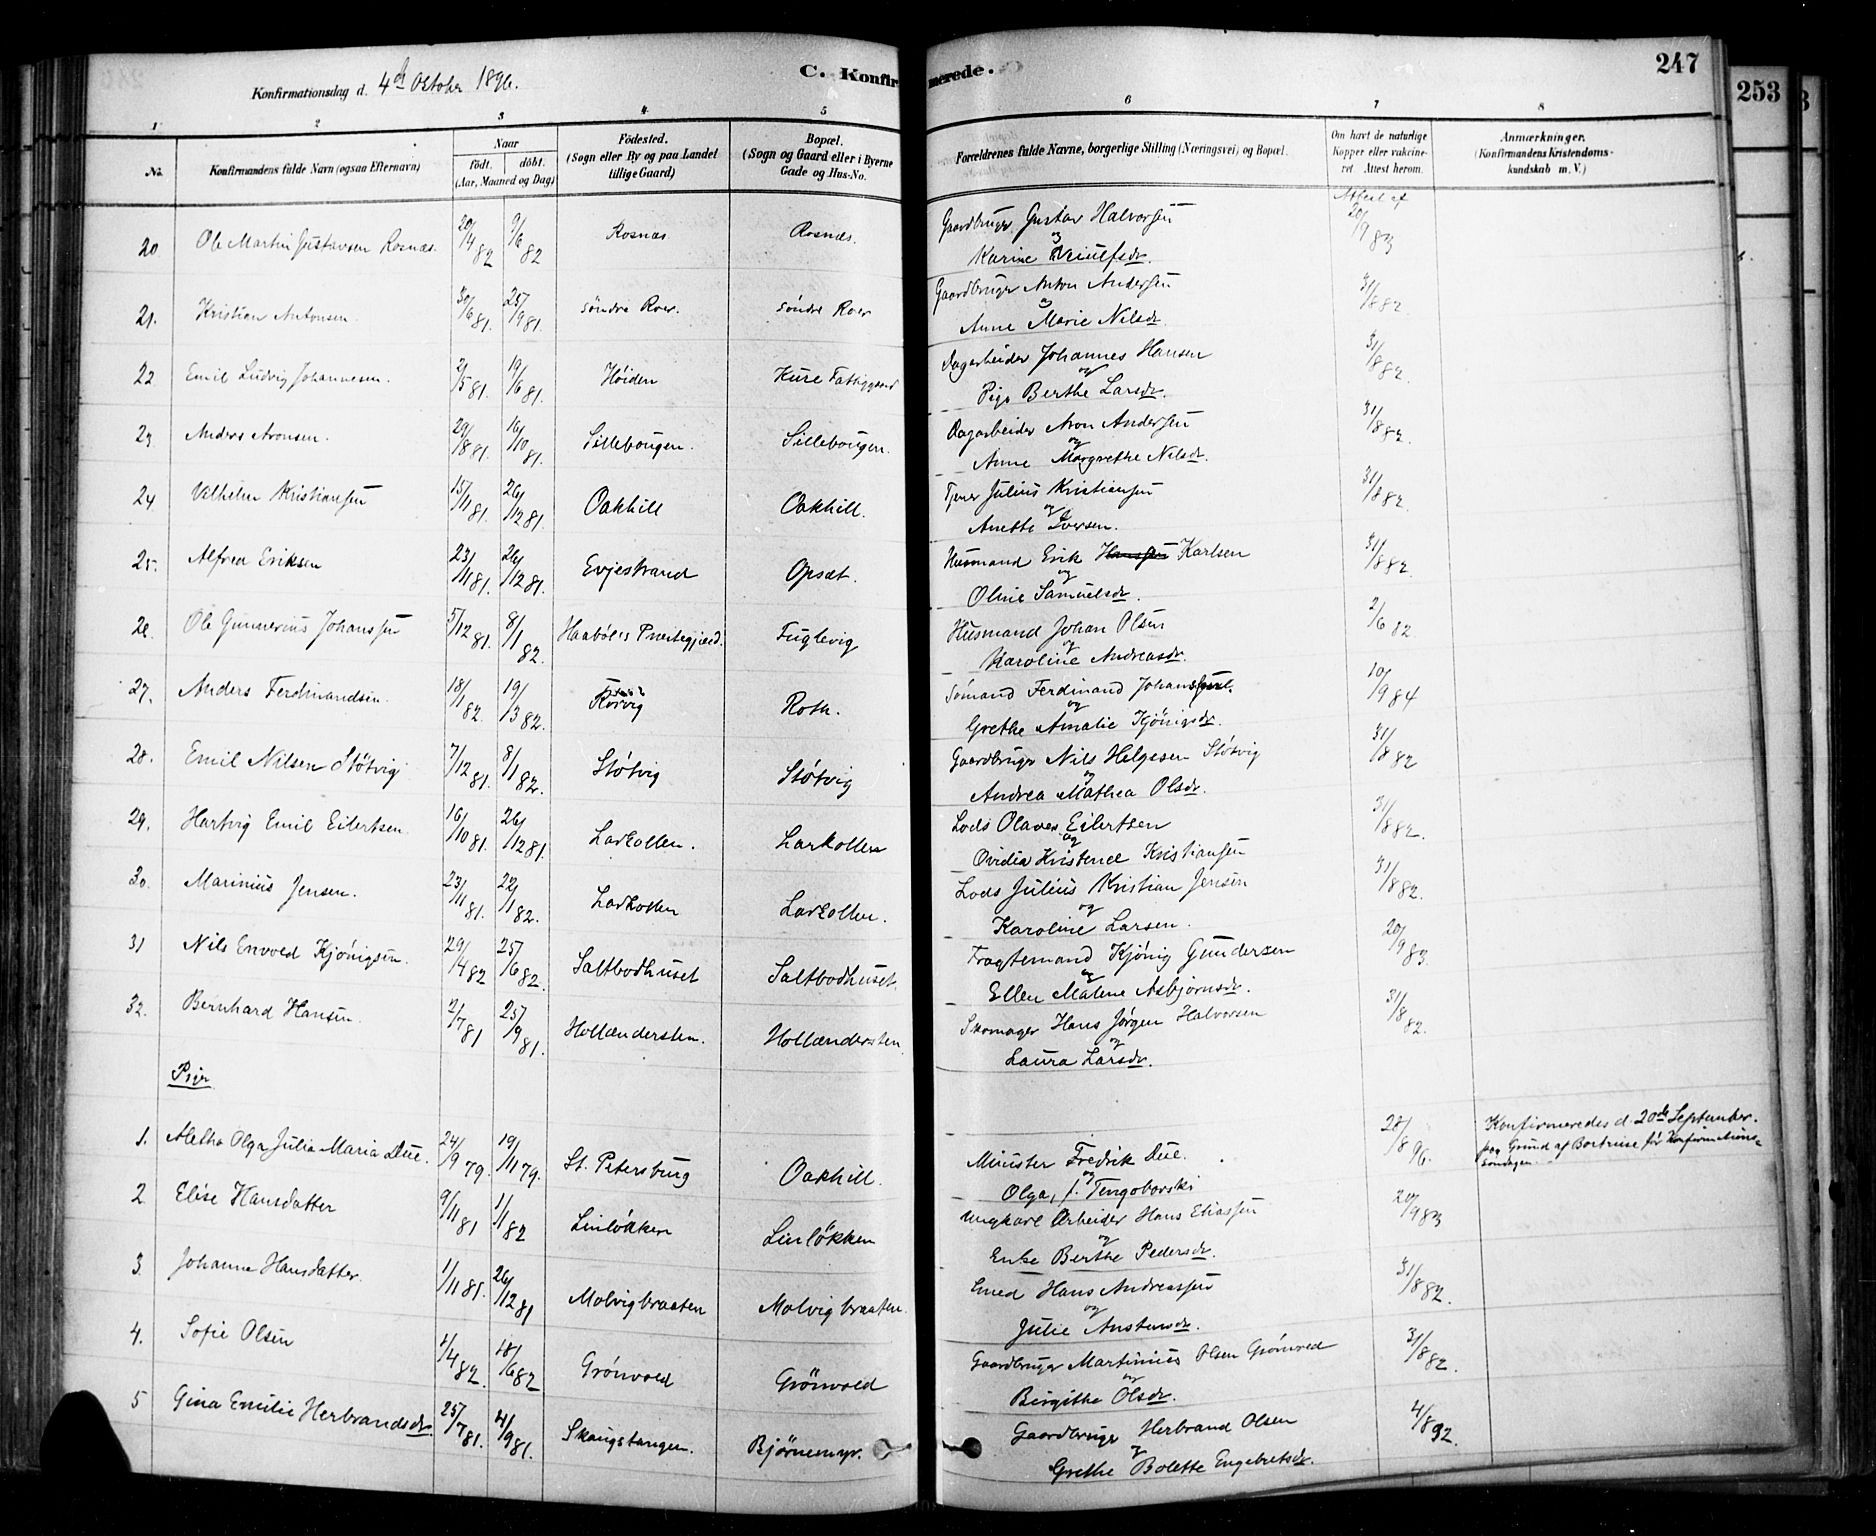 C. Konfirmerede.
247
253
Konfirmationsdag d. 4de Oktober 1896.
1 2 3 4 5 6 7 8
No. Konfirmandens fulde Navn (ogsaa Efternavn) Naar födt. döbt. (Aar, Maaned og Dag) Födested. (Sogn eller By og paa Landet tillige Gaard) Bopæl. (Sogn og Gaard eller i Byerne Gade og Hus-No. Forældrenes fulde Navne, borgerlige Stilling (Næringsvei) og Bopæl. Om havt de naturlige Kopper eller vaccineret. Attest herom. Anmærkninger. (Konfirmandens Kristendomskundskab m. V.)
20 Ole Martin Gustavsen Rosnæs. 20/4 82 9/6 82 Rosnæs Rosnæs. Gaardbruger Gustav Halvorsen 20/9 83
og
Karine
21. Kristian Antonsen. 30/6 81. 25/9 81. søndre Roer. søndre Roer Gaardbruger Anton Andersen 31/8 82.
og
Anne Marie Nilsdr.
22 Emil Ludvig Johannesen. 2/5 81. 19/6 81. Høiden Kure Fattiggaard Dagarbeider Johannes Hansen 31/8 82.
og
Pige Berthe Larsdr.
23 Anders Aronsen. 29/8 81. 16/10 81. Sillebougen. Sillebougen. Dagarbeider Aron Andersen 31/8 82.
og
Anne Margrethe Nilsdr.
24 Vilhelm Kristiansen 15/11 81. 26/12 81. Oakhill Oakhill. Tjener Julius Kristiansen 31/8 82.
og
Anette Iversen.
25. Alfred Eriksen 23/11 81. 26/12 81. Evjestrand Opsæt. Husmand Erik Hanssen Karlsen 31/8 82.
og
Oline Samuelsdr.
26. Ole Gunnerius Johanssen 5/12 81. 8/1 82. Haabøl's Præstegjæld. Fuglevig Husmand Johan Olsen 2/6 82
og
Karoline Andreasdr.
27. Anders Ferdinandsen. 18/1 82. 19/3 82. Roth. Sömand Ferdinand Johanssen 10/9 84
og
Grethe Amalie Kjönigsdr.
28. Emil Nilsen Støtvig 7/12 81. 8/1 82. Støtvig Støtvig Gaardbruger Nils Helgesen Støtvig 31/8 82
og
Andrea Mathea Olsdr.
29. Hartvig Emil Eilertsen. 16/10 81. 26/12 81. Larkollen. Larkollen Lods Olaves Eilertsen 31/8 82.
og
Ovidia Kristence Kristiansen
30. Marinius Jensen. 23/11 81. 22/1 82. Larkollen Larkollen. Lods Julius Kristian Jensen 31/8 82.
og
Karoline Larsen.
31 Nils Envold Kjönigsen. 29/4 82 25/6 82. Saltbodhuset Saltbodhuset. Fragtemand Kjönig Gundersen 20/9 83.
og
Ellen Malene Asbjørnsdr.
32. Bernhard Hansen. 2/7 81 25/9 81. Hollændersten. Hollændersten. Skomager Hans Jørgen Halvorsen 31/8 82.
og
Laura Larsdr.
Piger
1. Aletha Olga Julia Maria Due. 24/9 79. 19/11 79. St. Petersburg Oakhill. Minister Fredrik Due. 28/8 96. Konfirmeredes d 20de September.
paa Grund af Bortreise før Konfirmations-
søndagen.
og
Olga, f. Tengoborski
2 Elise Hansdatter 9/11 81 1/1 82 Linløkken Linløkken Ungkarl Arbeider Hans Eliassen 20/9 83
og
Enke Berthe Pedersdr.
3. Johanne Hansdatter. 1/11 81. 26/12 81 Molvigbraaten Molvigbraaten. Smed Hans Andreassen 31/8 82.
og
Julie Anstensdr.
4. Sofie Olsen 1/4 82. 18/6 82 Grönvold Grönvold Gaardbruger Martinius Olsen Grönvold 31/8 82.
og
Birgithe Olsdr.
5 Gina Emilie Herbrandsdr. 25/7 81. 4/9 81. Skaugstangen. Bjørnemyr. Gaardbruger Herbrand Olsen 4/8 92.
og
Grethe Bolette Engebretsdr.